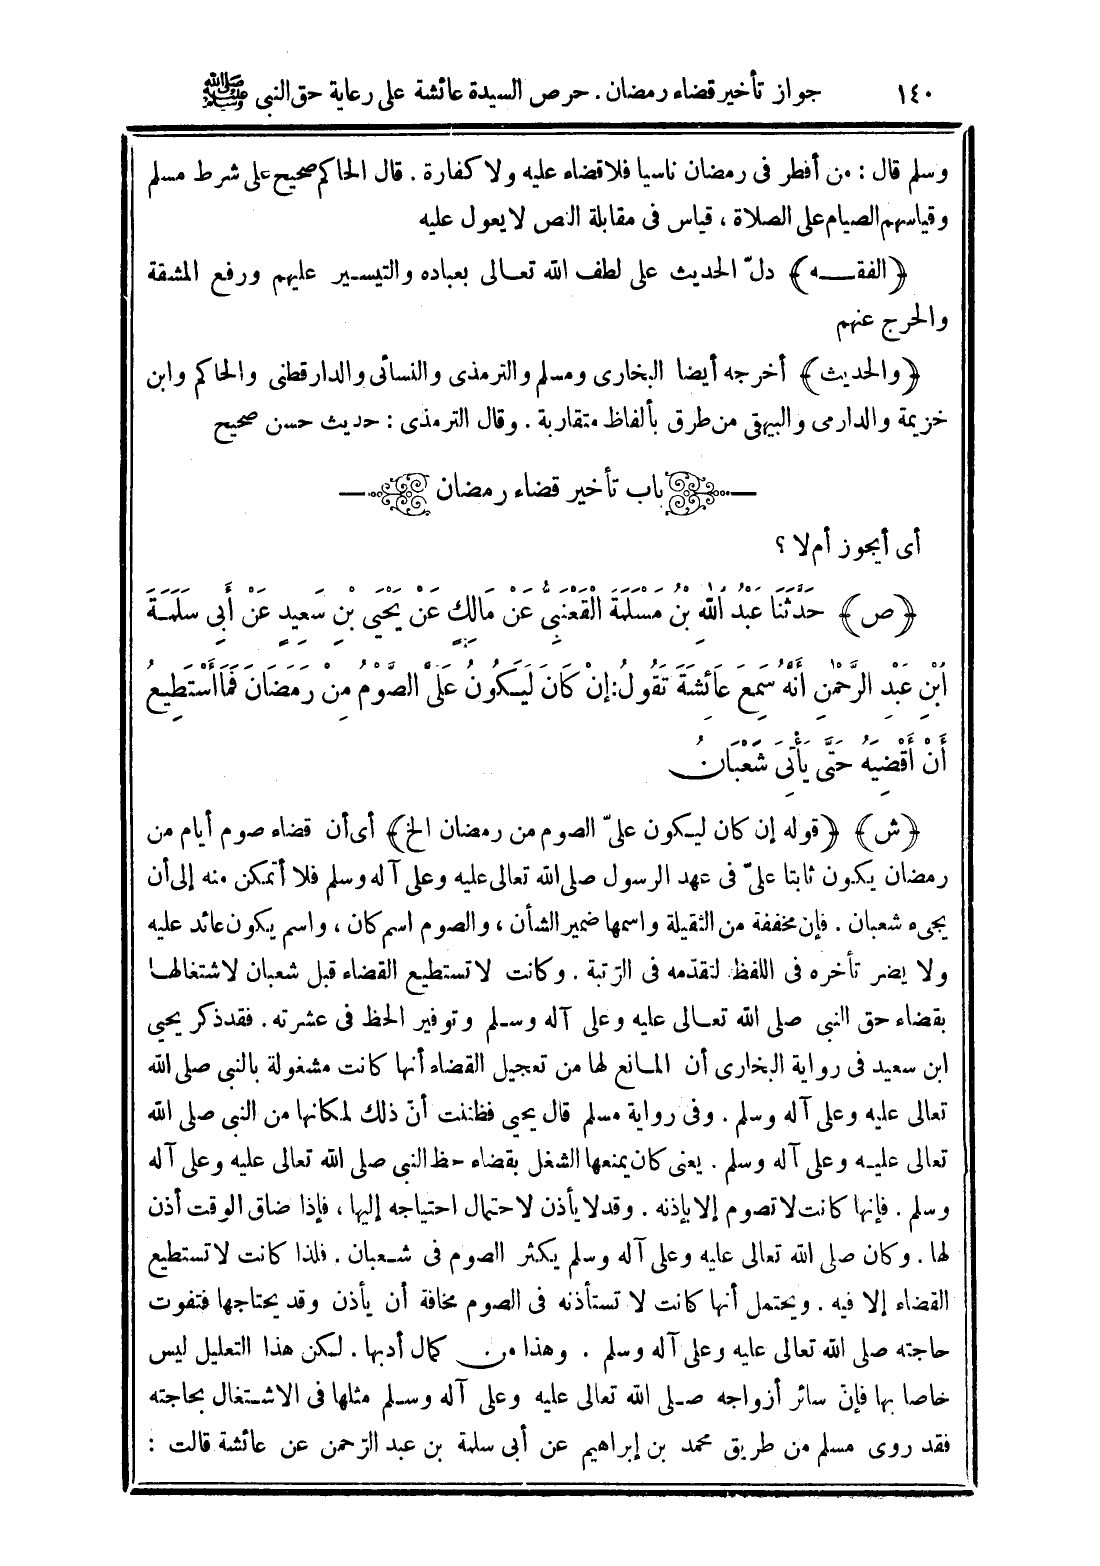 ١٤٠ جواز تأخير قضاء رمضان . حرص السيدة عائشة على رعاية حق النبى ﷺ
وسلم قال : من أفطر فى رمضان ناسيا فلا قضاء عليه ولا كفارة . قال الحاكم صحيح على شرط مسلم
وقياسهم الصيام على الصلاة ، قياس فى مقابلة النص لا يعول عليه
﴿الفقــه﴾ دلّ الحديث على لطف الله تعـالى بعباده والتيسـير عليهم ورفع المشقة
والحرج عنهم
﴿والحديث﴾ أخرجه أيضا البخارى ومسلم والترمذى والنسائى والدارقطنى والحاكم وابن
خزيمة والدارمى والبيهقى من طرق بألفاظ متقاربة . وقال الترمذى : حديث حسن صحيح
باب تأخير قضاء رمضان
أى أيجوز أم لا ؟
﴿ص﴾ حَدَّثَنَا عَبْدُ اللهِ بْنُ مَسْلَمَةَ الْقَعْنَبِىُّ عَنْ مَالِكٍ عَنْ يَحْيَى بْنِ سَعِيدٍ عَنْ أَبِى سَلَمَـةَ
ابْنِ عَبْدِ الرَّحْمٰنِ أَنَّهُ سَمِعَ عَائِشَةَ تَقُولُ: إِنْ كَانَ لَيَكُونُ عَلَىَّ الصَّوْمُ مِنْ رَمَضَانَ فَمَا أَسْتَطِيعُ
أَنْ أَقْضِيَهُ حَتَّى يَأْتِىَ شَعْبَانُ
﴿ش﴾ ﴿قوله إن كان ليـكون علىّ الصوم من رمضان الخ﴾ أى أن قضاء صوم أيام من
رمضان يكون ثابتا علىّ فى عهد الرسول صلى الله تعالى عليه وعلى آله وسلم فلا أتمكن منه إلى أن
يجىء شعبان . فإن مخففة من الثقيلة واسمها ضمير الشأن ، والصوم اسم كان ، واسم يكون عائد عليه
ولا يضر تأخره فى اللفظ لتقدّمه فى الرّتبة . وكانت لا تستطيع القضاء قبل شعبان لاشتغالهـا
بقضاء حق النبى صلى الله تعـالى عليه وعلى آله وسـلم وتوفير الحظ فى عشرته . فقد ذكر يحيى
ابن سعيد فى رواية البخارى أن المـانع لها من تعجيل القضاء أنها كانت مشغولة بالنبى صلى الله
تعالى عليه وعلى آله وسلم . وفى رواية مسلم قال يحيى فظننت أنّ ذلك لمكانها من النبى صلى الله
تعالى عليـه وعلى آله وسلم . يعنى كان يمنعها الشغل بقضاء حظ النبى صلى الله تعالى عليه وعلى آله
وسلم . فإنها كانت لا تصوم إلا بإذنه . وقد لا يأذن لاحتمال احتياجه إليها ، فإذا ضاق الوقت أذن
لها . وكان صلى الله تعالى عليه وعلى آله وسلم يكثر الصوم فى شـعبان . فلذا كانت لا تستطيع
القضاء إلا فيه . ويحتمل أنها كانت لا تستأذنه فى الصوم مخافة أن يأذن وقد يحتاجها فتفوت
حاجته صلى الله تعالى عليه وعلى آله وسلم . وهذا من كمال أدبها . لـكن هذا التعليل ليس
خاصا بها فإنّ سائر أزواجه صـلى الله تعالى عليه وعلى آله وسـلم مثلها فى الاشـتغال بحاجته
فقد روى مسلم من طريق محمد بن إبراهيم عن أبى سلمة بن عبد الرّحمن عن عائشة قالت :